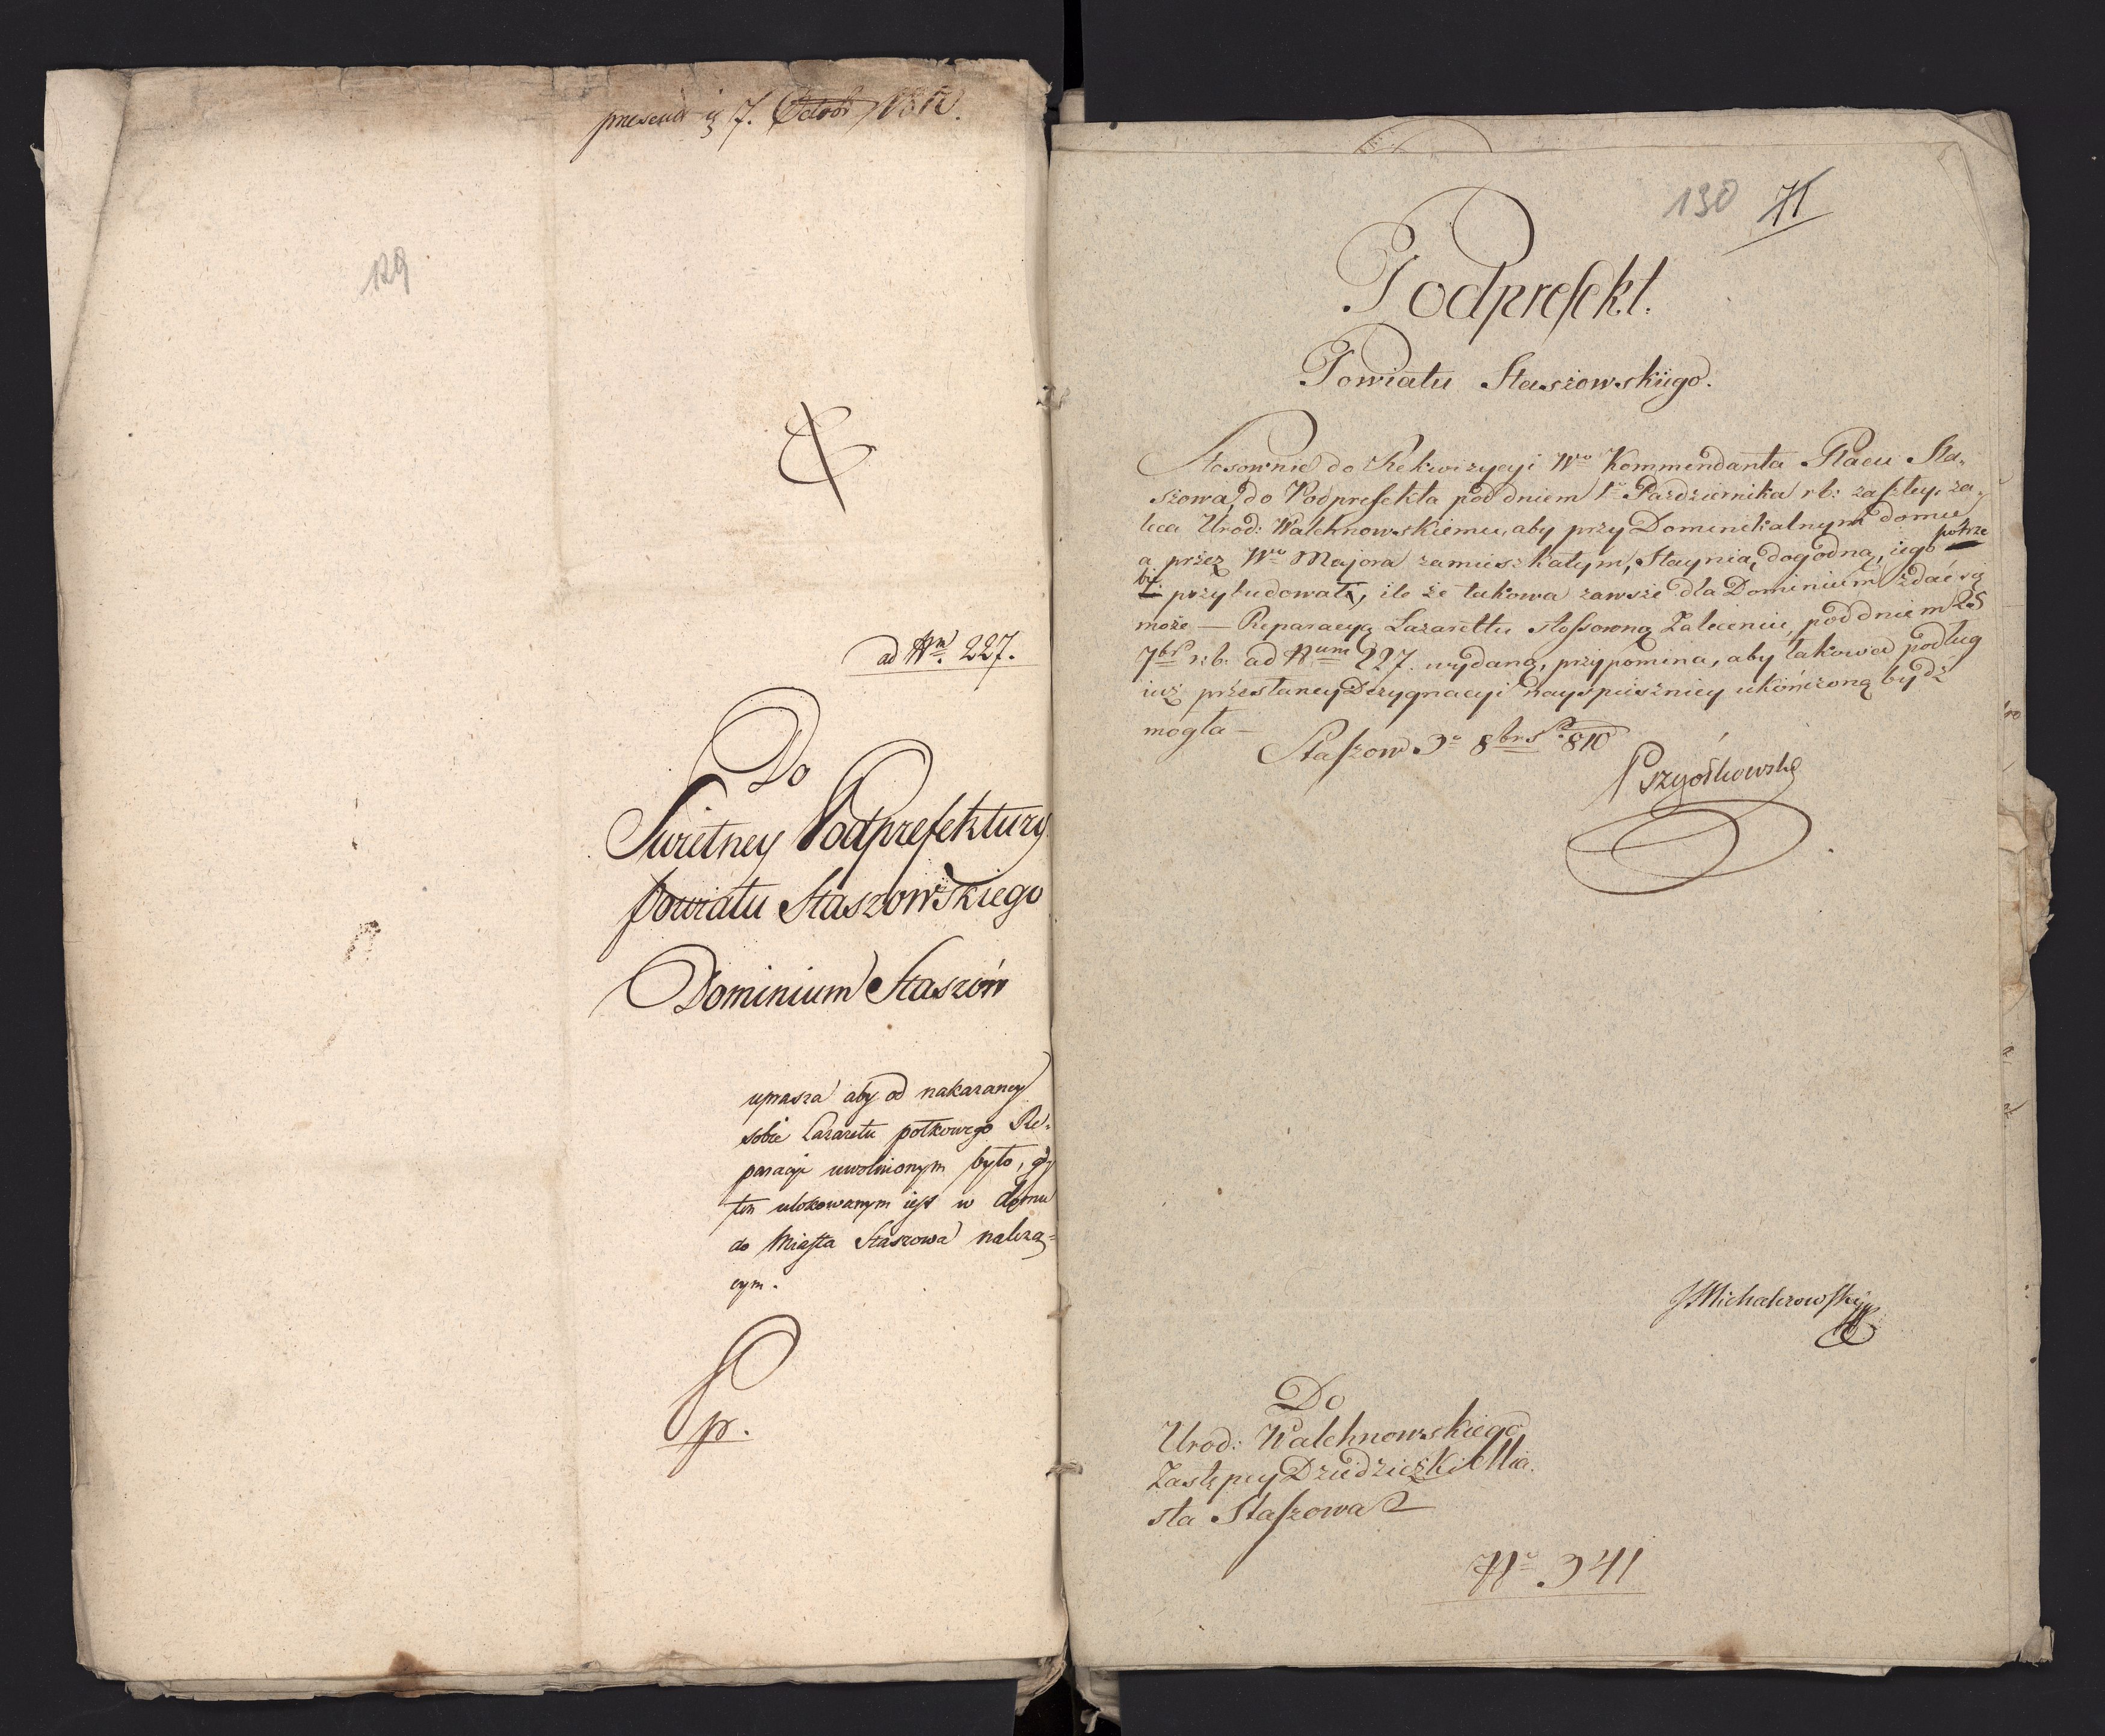 7. Octobr 1810.
129
ad Nrm. 227.
Do
Swietney Podprefektury
Powiatu Staszowskiego
Dominium Staszów
uprasza aby od nakazaney
sobie Lazaretu połkowego Re-
paracyi uwolnionym było, gdy
ten ulokowanym iest w domu
do Miasta Staszowa należą-
cym.
pr.
130 71
Podprefekt.
Powiatu Staszowskiego.
Stosownie do Rekwizycyi Wo Kommendanta Placu Sta-
szowa, do Podprefekta pod dniem 1o Pazdziernika rb: zaszley, za-
leca Urod: Walchnowskiemu, aby przy Dominikalnym domie
a przez Wo Majora zamieszkałym, Staynią dogodną, iego potrze
by przybudował, ile że takowa zawsze dla Dominium zdać się
może — Reparacyą Lazarettu stossowną Zaleceniu, pod dniem 25
7bra r:b: ad Num 227. wydaną, przypomina, aby takowa podług
iuż przesłaney Dezygnacyi nayspieszniey ukończoną bydz
mogła —
Staszow 3o 8bris 810
Przyółkowski
JMichalczowski
Do
Urod: Walchnowskiego
Zastępcy Dziedziczki Mia-
sta Staszowa
No 341